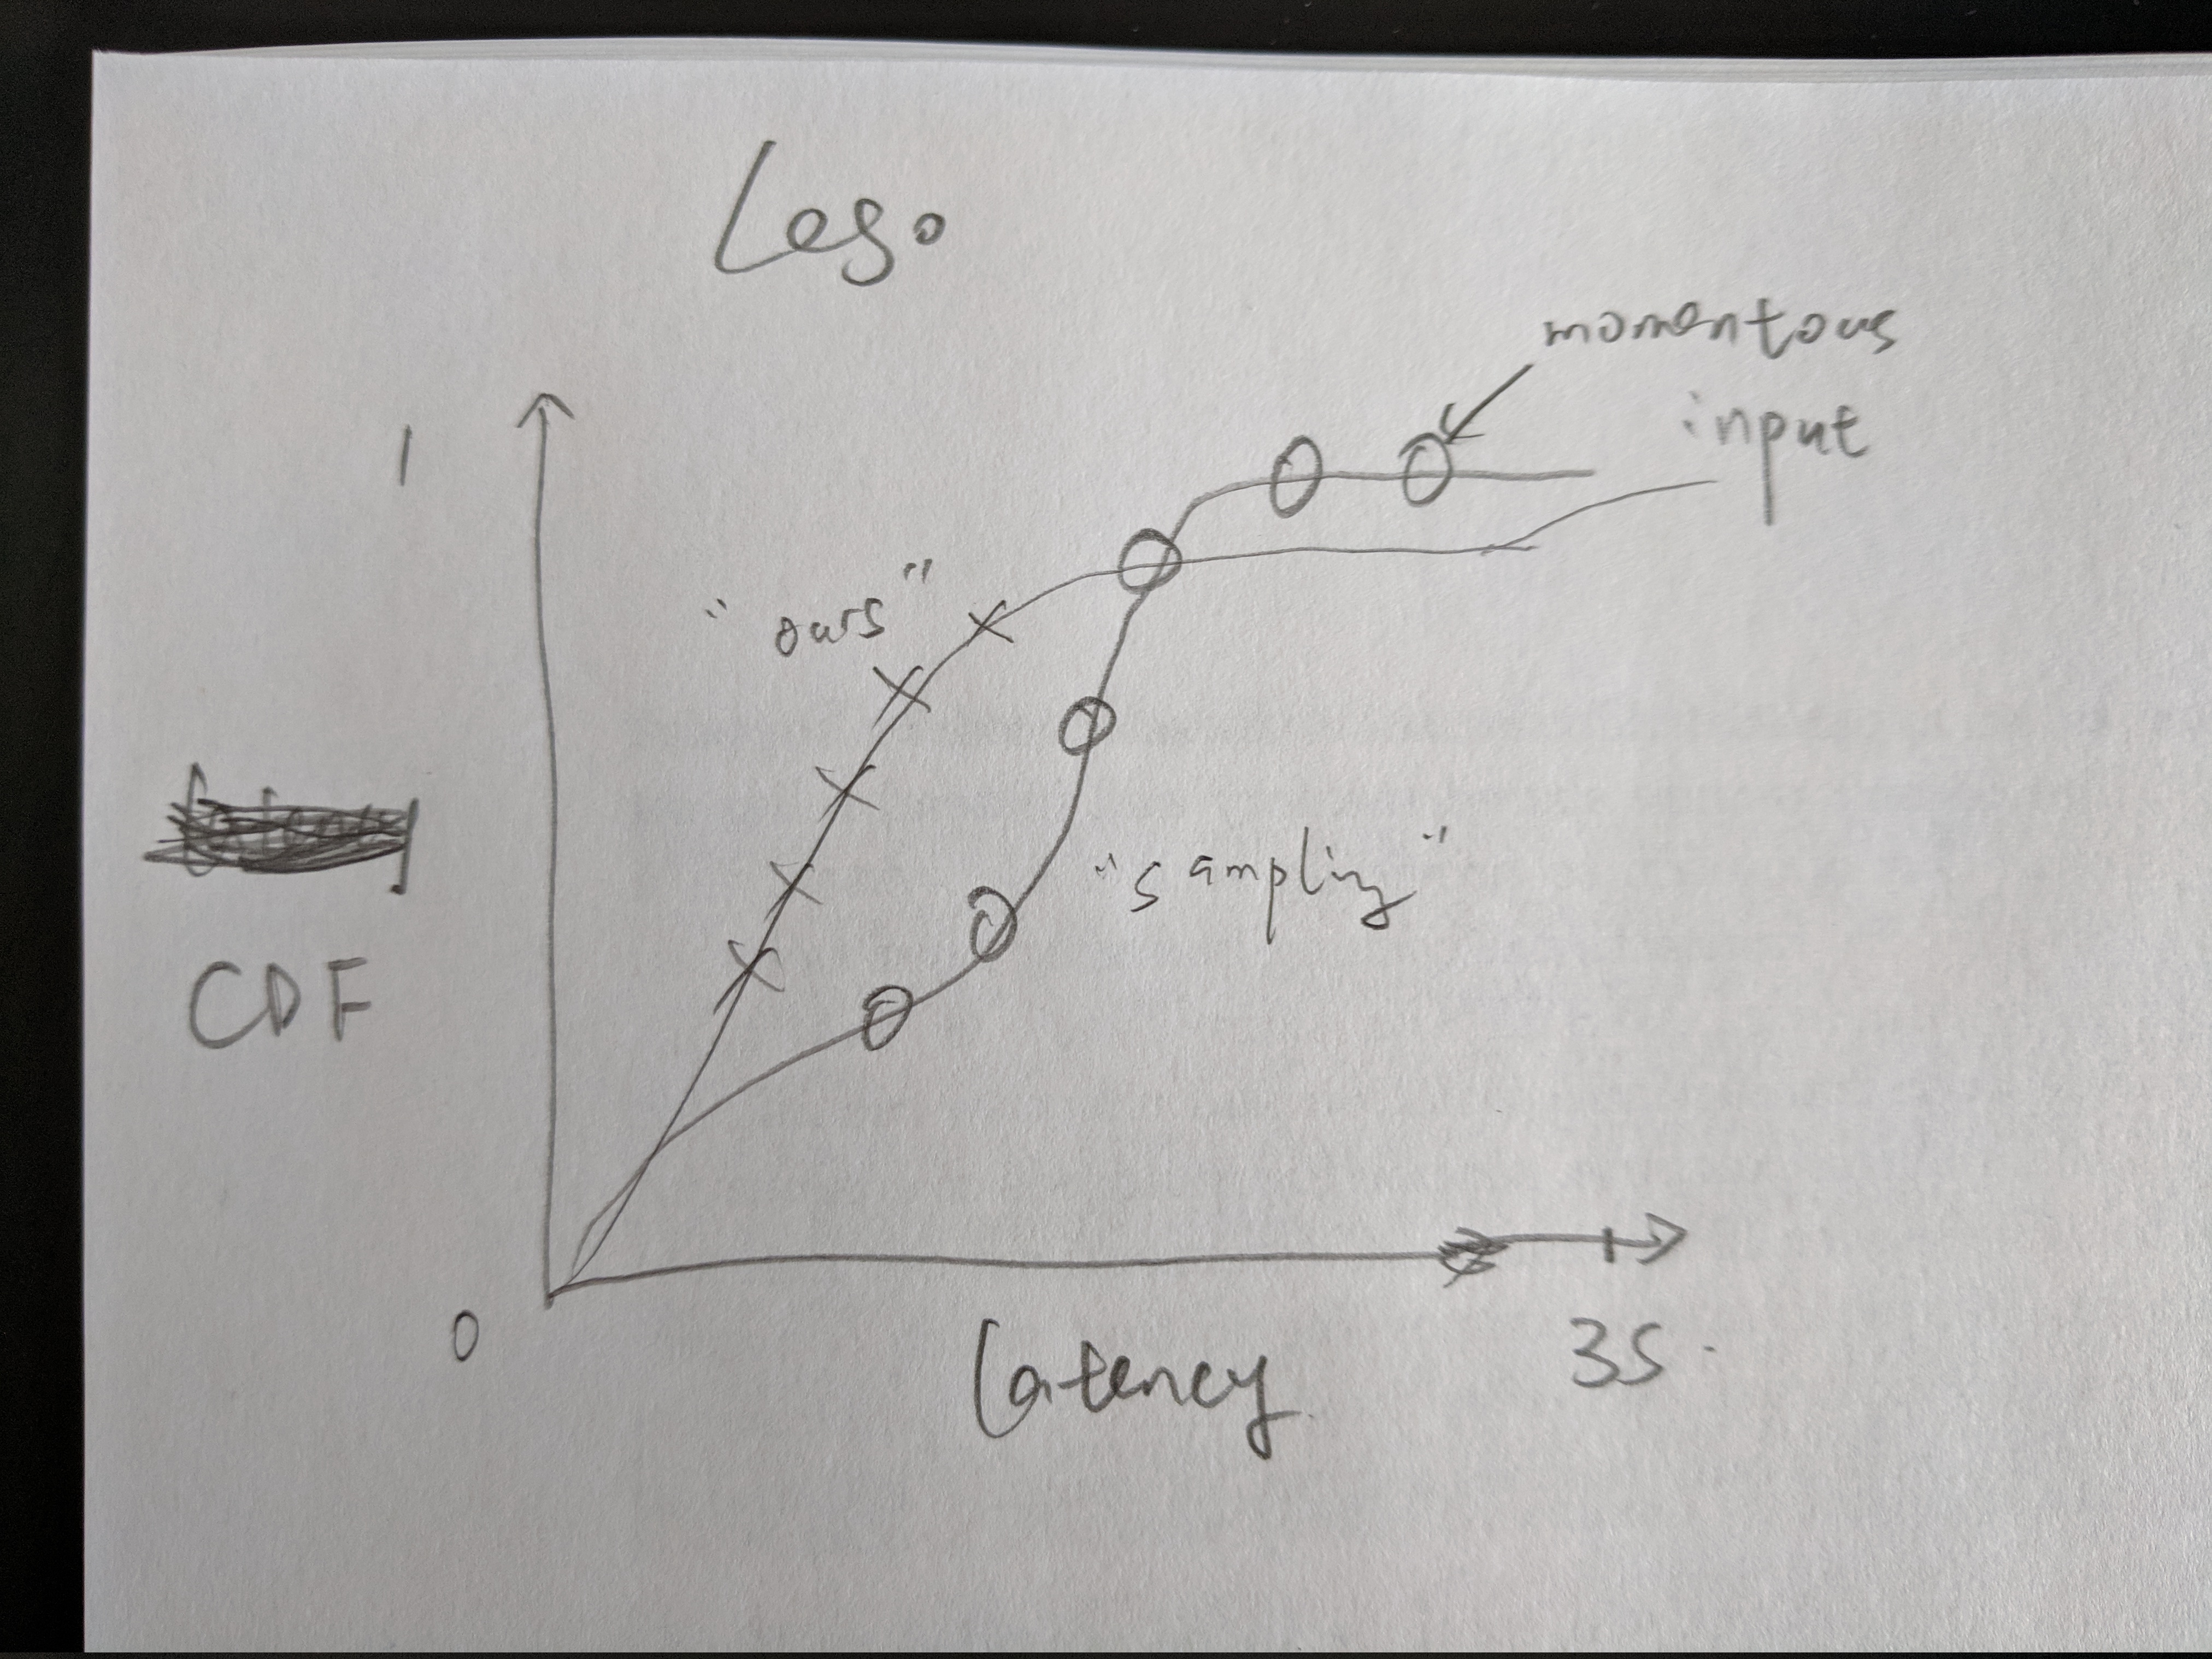 Lego
momentous
input
1
"ours"
"sampling"
CDF
0
Latency
3S.